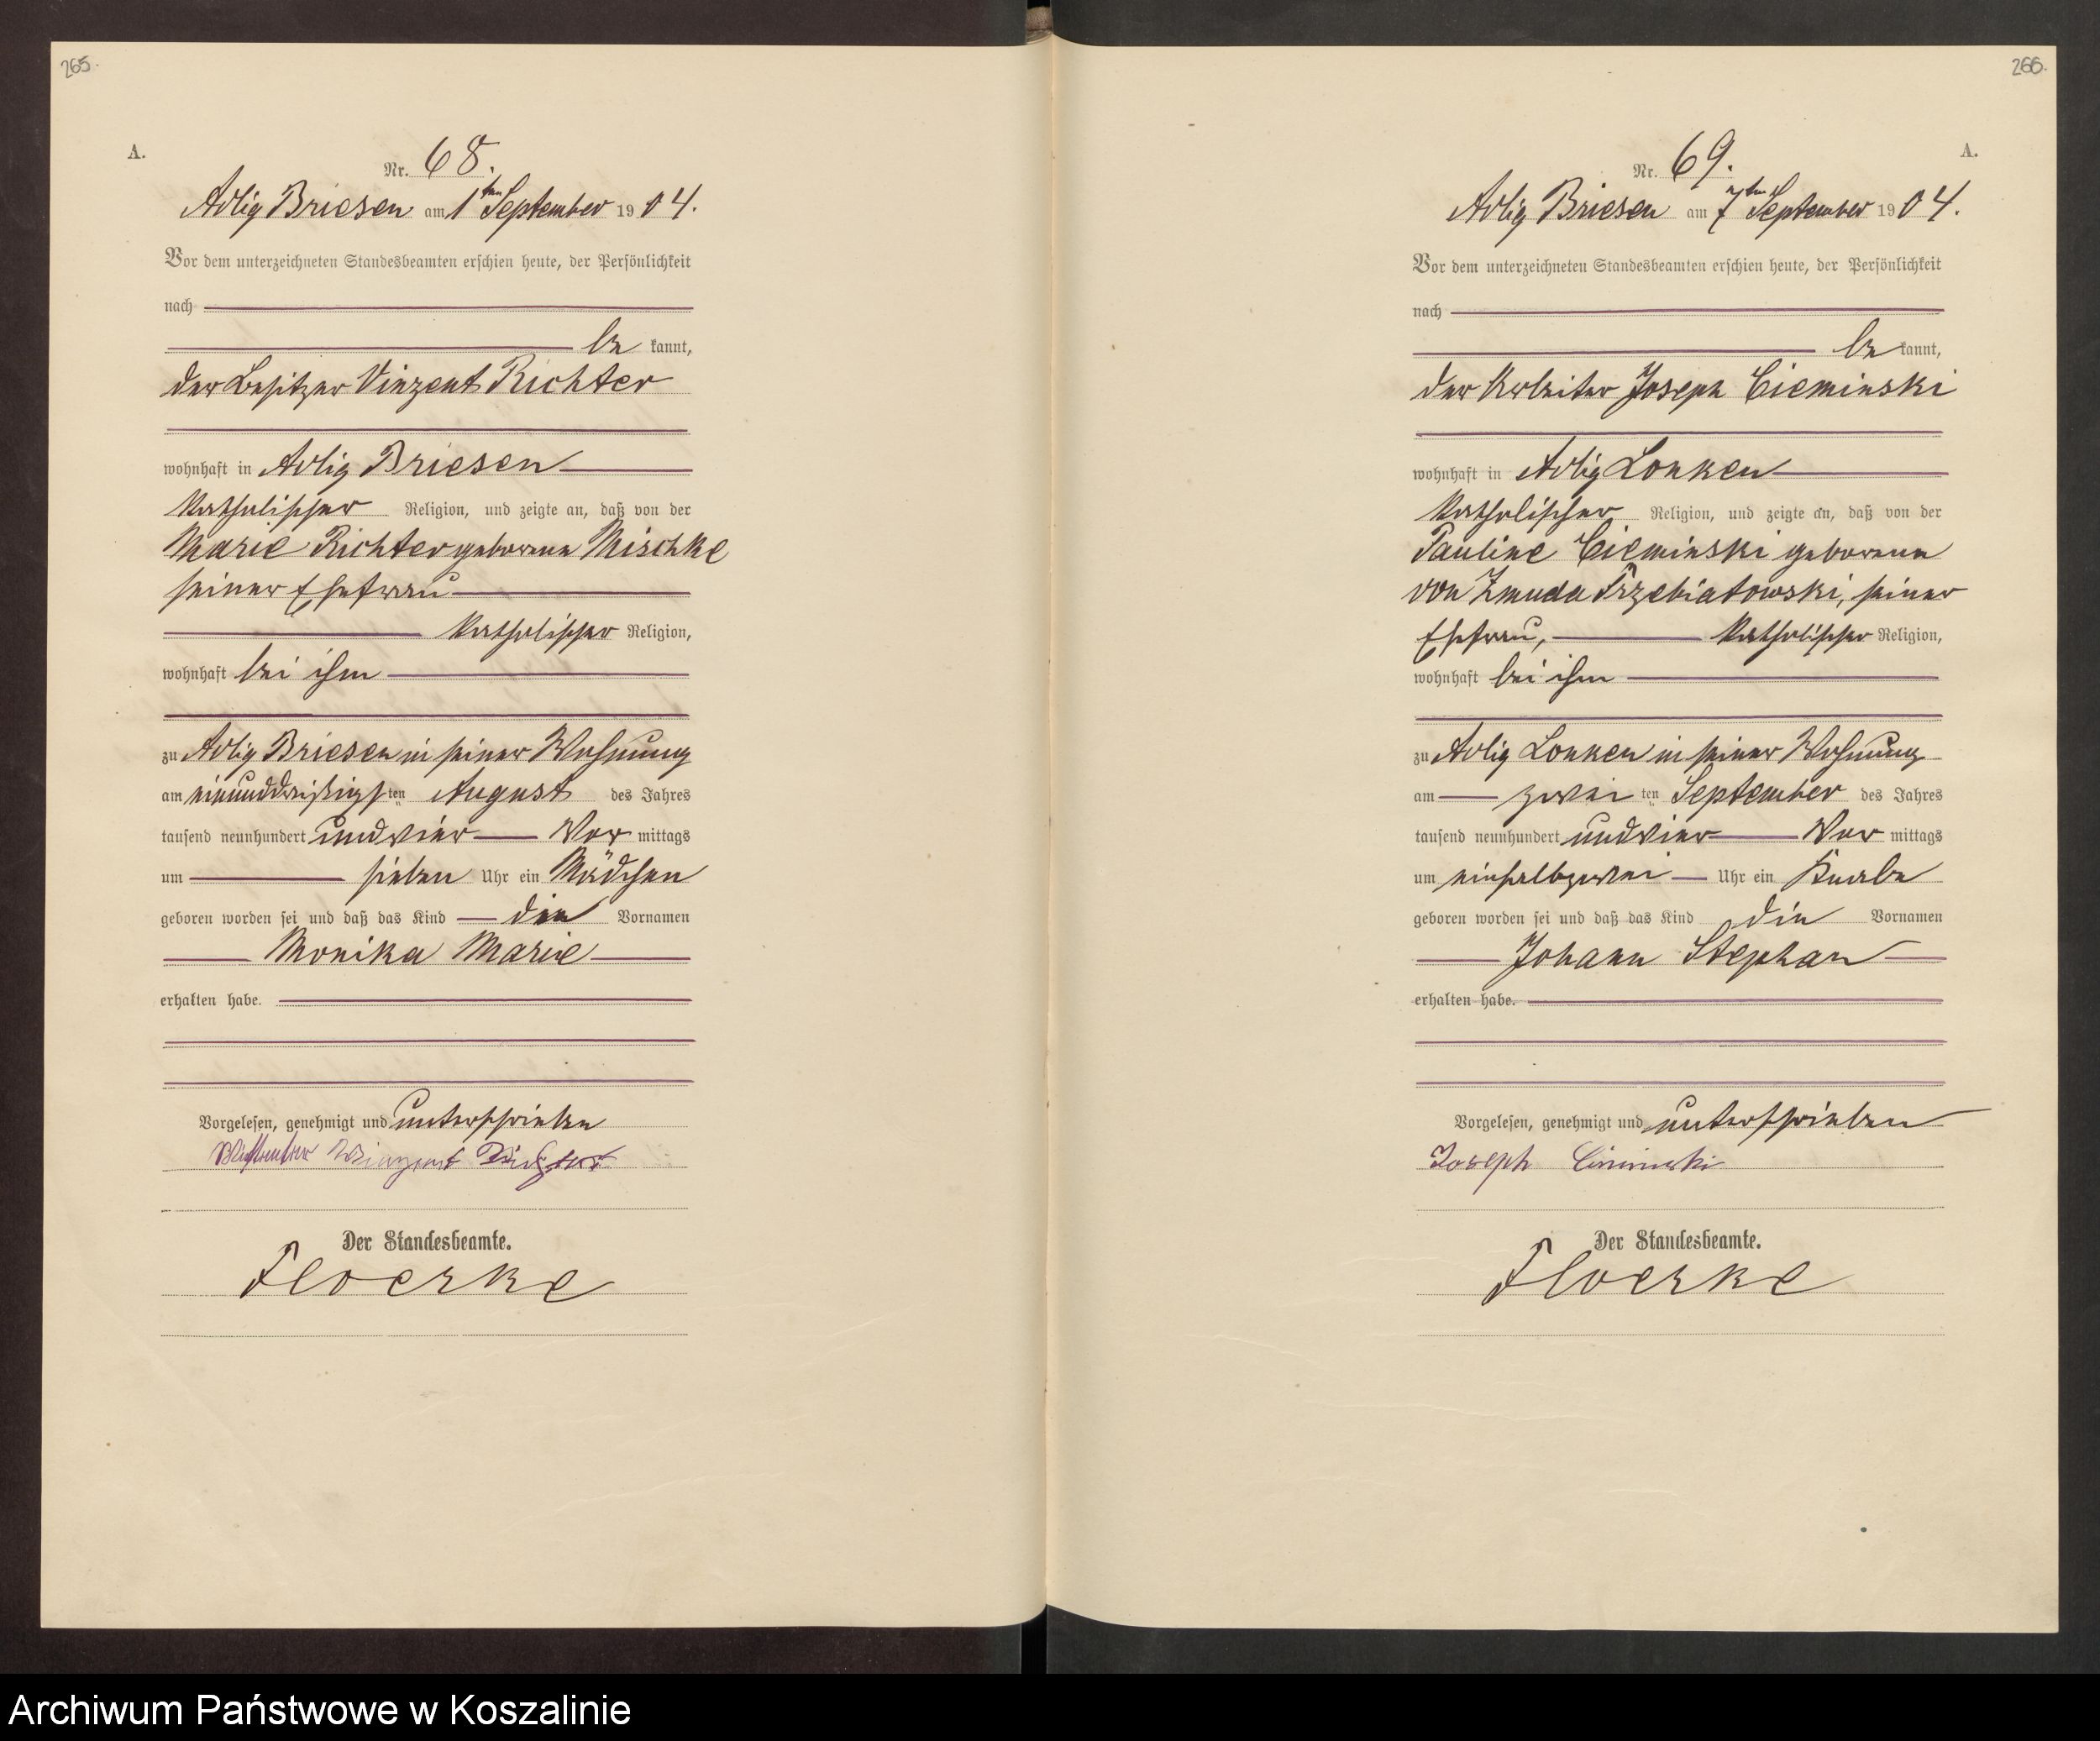 265.
A.
Nr. 68.
Adlig Briesen am 1ten September 1904.
Vor dem unterzeichneten Standesbeamten erschien heute, der Persönlichkeit
nach
be kannt,
der Besitzer Vinzent Richter
wohnhaft in Adlig Briesen
katholischer Religion, und zeigte an, daß von der
Marie Richter geborenen Mischke
seiner Ehefrau
katholischer Religion,
wohnhaft bei ihm
zu Adlig Briesen in seiner Wohnung
am einunddreißigsten August des Jahres
tausend neunhundert und vier Vor mittags
um sieben Uhr ein Mädchen
geboren worden sei und daß das Kind die Vornamen
Monika Marie
erhalten habe.
Vorgelesen, genehmigt und unterschrieben
Winzent Richter
Der Standesbeamte.
Floerke
266.
A.
Nr. 69.
Adlig Briesen am 7ten September 1904.
Vor dem unterzeichneten Standesbeamten erschien heute, der Persönlichkeit
nach
be kannt,
der Arbeiter Joseph Cieminski
wohnhaft in Adlig Lonken
katholischer Religion, und zeigte an, daß von der
Pauline Cieminski geborenen
von Zmuda Trzebiatowski, seiner
Ehefrau, katholischer Religion,
wohnhaft bei ihm
zu Adlig Lonken in seiner Wohnung
am zweiten September des Jahres
tausend neunhundert und vier Vor mittags
um einhalbzwei Uhr ein Knabe
geboren worden sei und daß das Kind die Vornamen
Johann Stephan
erhalten habe.
Vorgelesen, genehmigt und unterschrieben
Joseph Ciminski
Der Standesbeamte.
Floerke
Archiwum Państwowe w Koszalinie